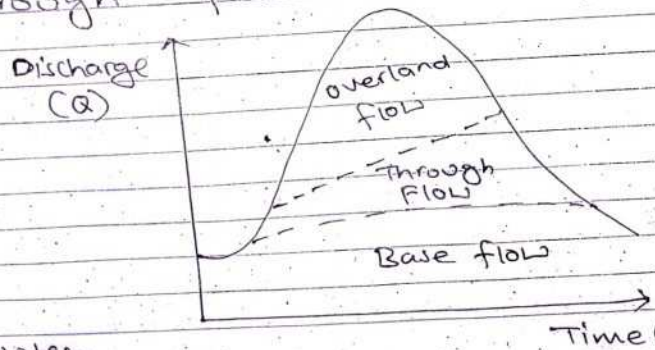 Discharge
(Q)
overland
flow
Through
Flow
Base flow
Time